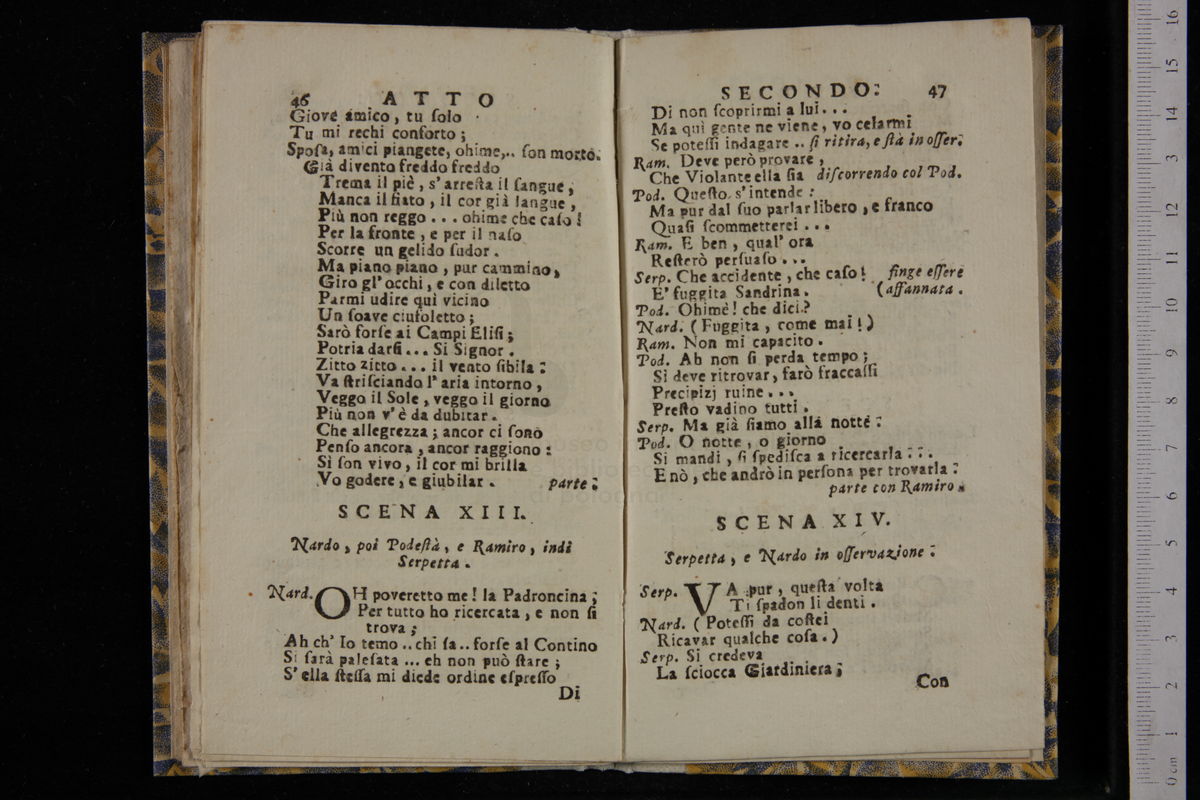 46 ATTO
Giove amico, tu ſolo
Tu mi rechi conforto;
Spoſa, amici piangete, ohime,.. ſon morto.
Già divento freddo freddo
Trema il piè, s' arreſta il ſangue,
Manca il fiato, il cor già langue,
Più non reggo... ohime che caſo!
Per la fronte, e per il naſo
Scorre un gelido ſudor.
Ma piano piano, pur cammino,
Giro gl' occhi, e con diletto
Parmi udire quì vicino
Un ſoave ciufoletto;
Sarò forſe ai Campi Eliſi;
Potria darſi... Si Signor.
Zitto zitto... il vento ſibila:
Va ſtriſciando l' aria intorno,
Veggo il Sole, veggo il giorno
Più non v' è da dubitar.
Che allegrezza; ancor ci ſono
Penſo ancora, ancor raggiono:
Sì ſon vivo, il cor mi brilla
Vo godere, e giubilar. parte:
SCENA XIII.
Nardo, poi Podeſtà, e Ramiro, indi
Serpetta.
Nard. OH poveretto me! la Padroncina;
Per tutto ho ricercata, e non ſi
trova;
Ah ch' Io temo.. chi ſa.. forſe al Contino
Si ſarà paleſata ... eh non può ſtare;
S' ella ſteſſa mi diede ordine eſpreſſo
Di
SECONDO: 47
Di non ſcoprirmi a lui...
Ma quì gente ne viene, vo celarmi
Se poteſſi indagare.. ſi ritira, e ſtà in oſſer:
Ram. Deve però provare,
Che Violante ella ſia diſcorrendo col Pod.
Pod. Queſto s' intende:
Ma pur dal ſuo parlar libero, e franco
Quaſi ſcommetterei...
Ram. E ben, qual' ora
Reſterò perſuaſo...
Serp. Che accidente, che caſo! finge eſſere
E' fuggita Sandrina. (affannata.
Pod. Ohimè! che dici?
Nard. (Fuggita, come mai!)
Ram. Non mi capacito.
Pod. Ah non ſi perda tempo;
Si deve ritrovar, farò fraccaſſi
Precipizj ruine...
Preſto vadino tutti.
Serp. Ma già ſiamo alla notte:
Pod. O notte, o giorno
Si mandi, ſi ſpediſca a ricercarla:..
E nò, che andrò in perſona per trovarla:
parte con Ramiro.
SCENA XIV.
Serpetta, e Nardo in oſſervazione:
Serp. VA pur, queſta volta
Ti ſpadon li denti.
Nard. (Poteſſi da coſtei
Ricavar qualche coſa.)
Serp. Si credeva
La ſciocca Giardiniera;
Con
0 cm 1 2 3 4 5 6 7 8 9 10 11 12 13 14 15 16